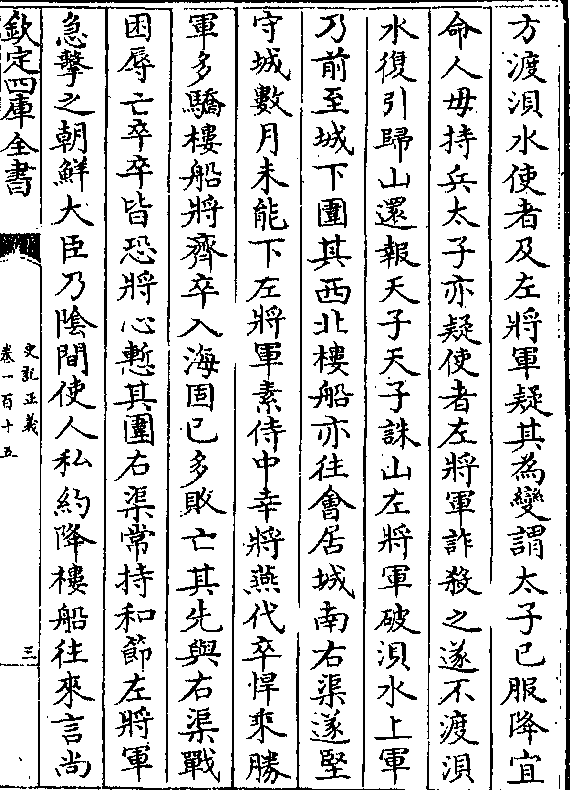 方渡浿水使者及左將軍疑其為變謂太子已服降宜
命人毋持兵太子亦疑使者左將軍詐殺之遂不渡浿
水復引歸山還報天子天子誅山左將軍破浿水上軍
乃前至城下圍其西北樓船亦往會居城南右渠遂堅
守城數月未能下左將軍素侍中幸將燕代卒悍乘勝
軍多驕樓船將齊卒入海固已多敗亡其先與右渠戰
困辱亡卒卒皆恐將心慙其圍右渠常持和節左將軍
急擊之朝鮮大臣乃陰間使人私約降樓船往來言尚
欽定四庫全書
史記正義
卷一百十五
三